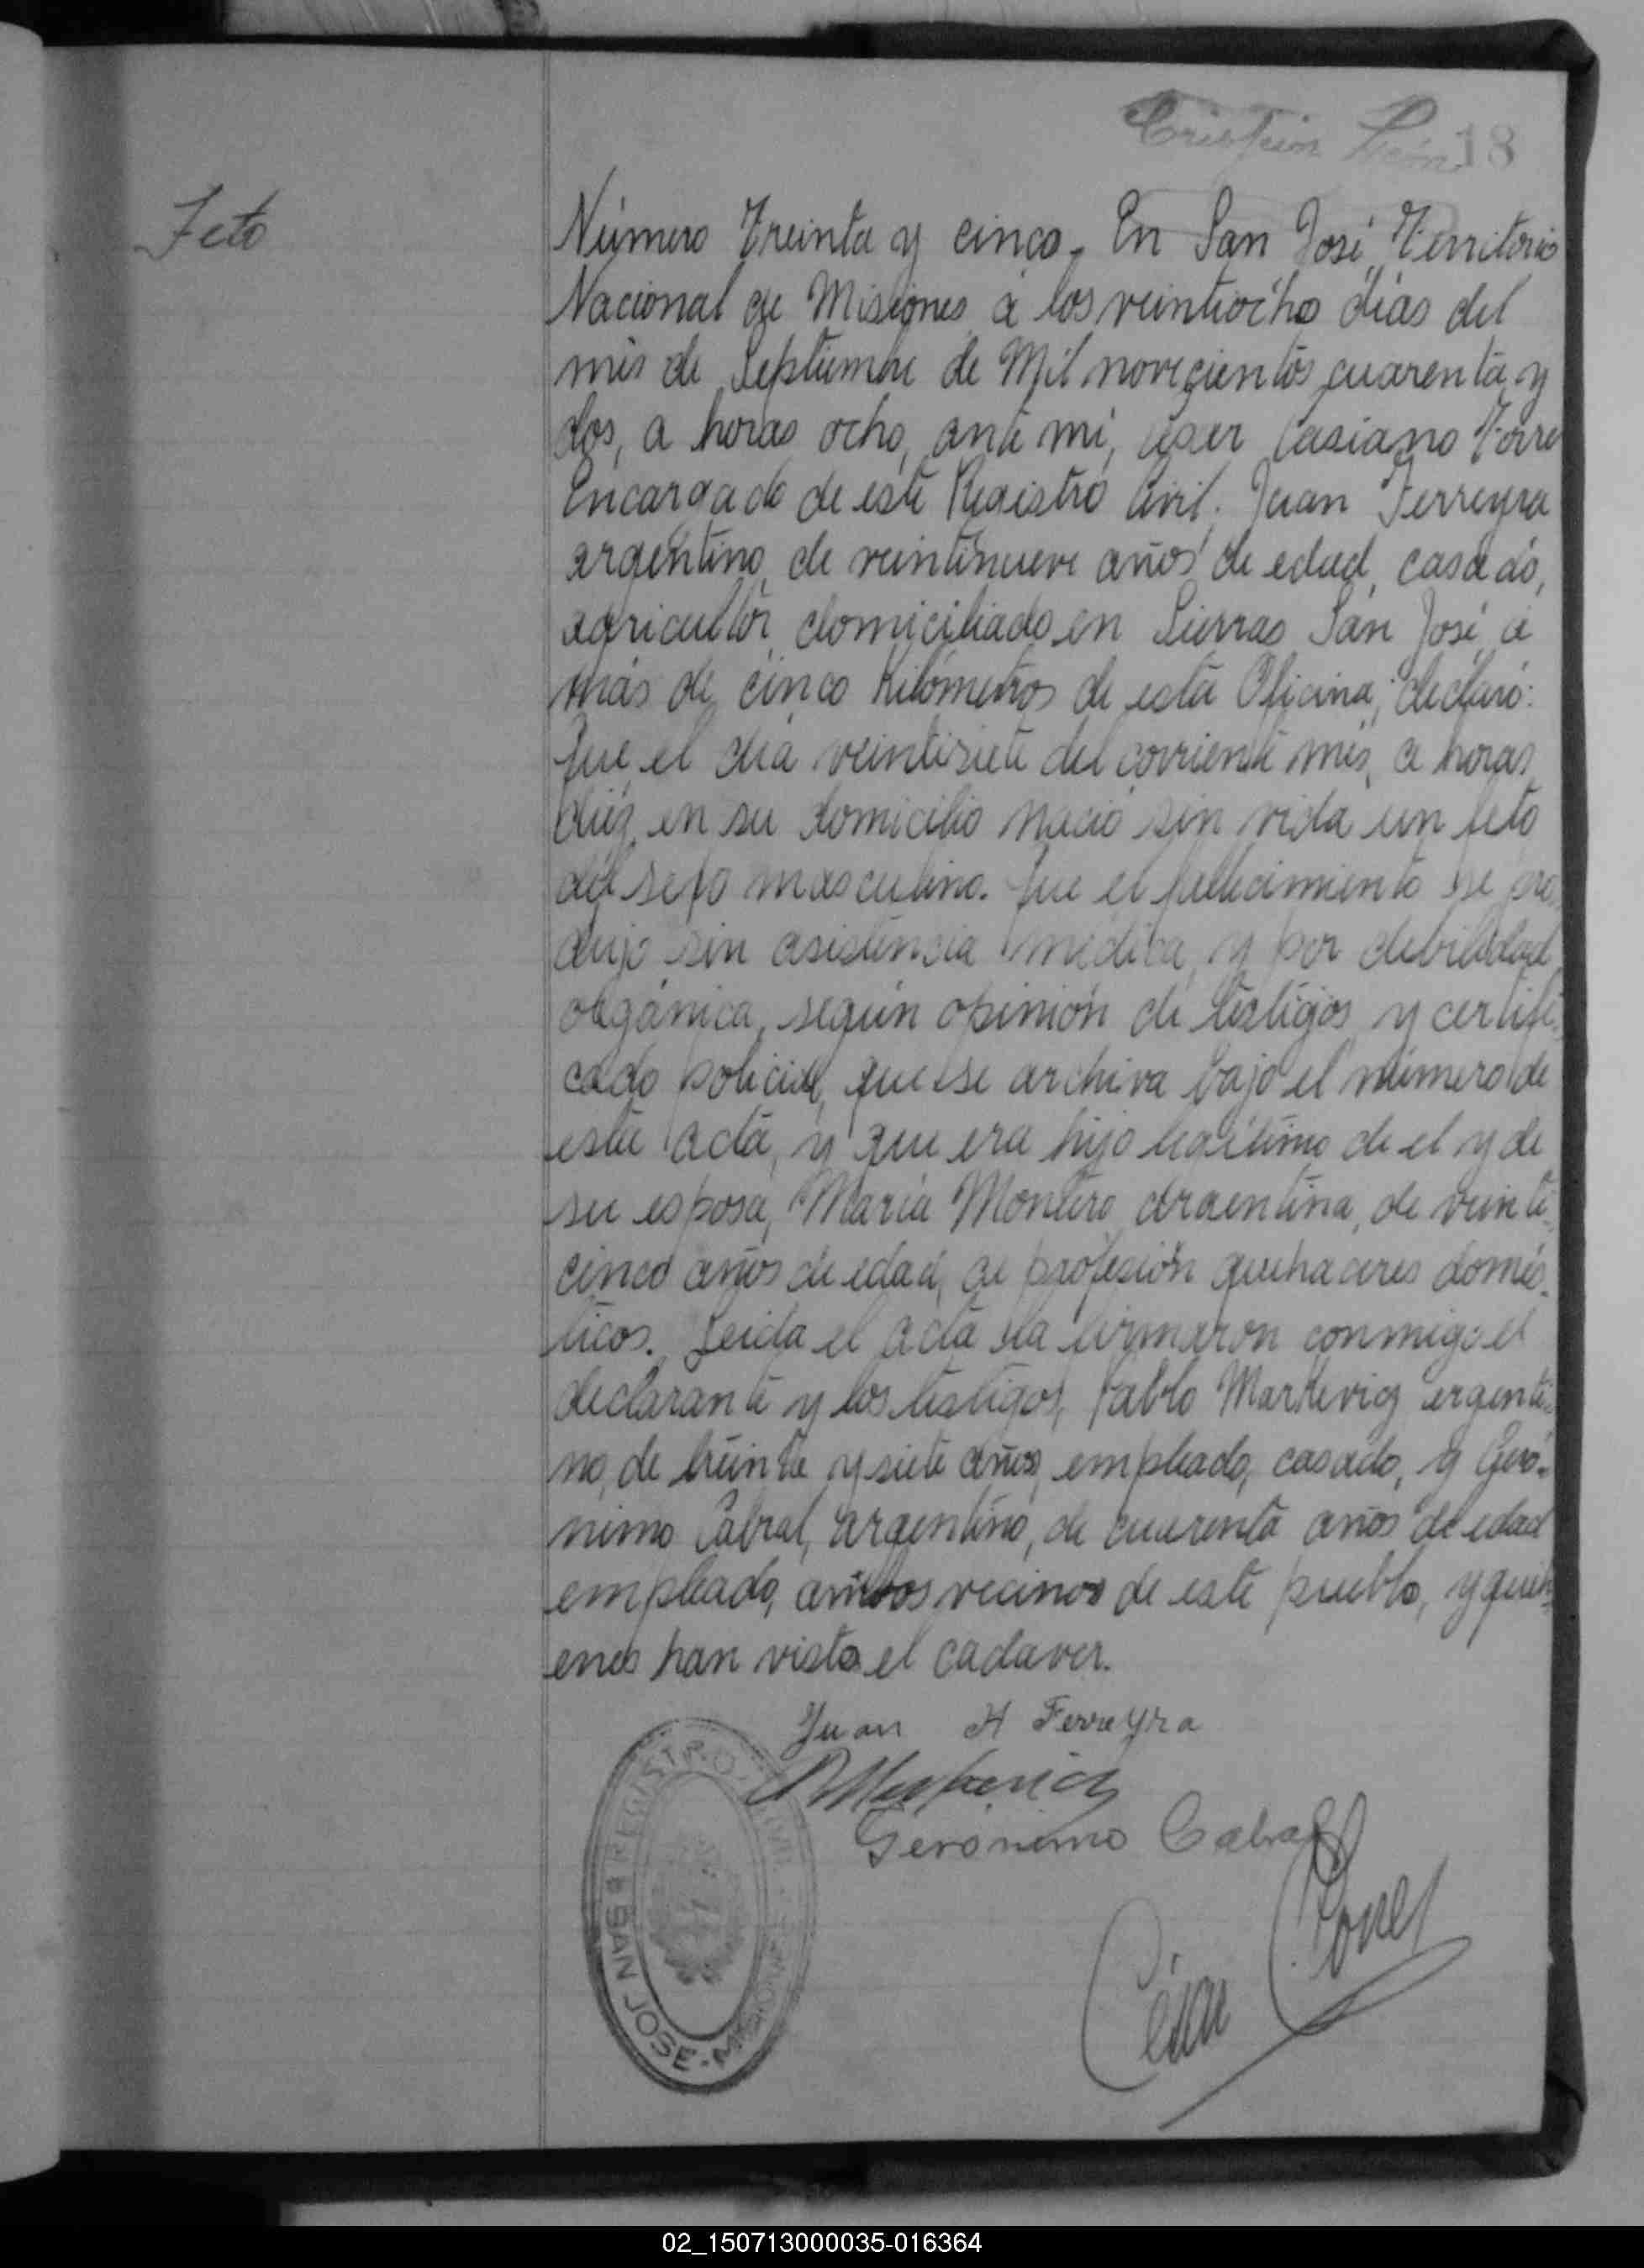 Cristian León 18
Feto
Número Treinta y cinco. En San José, Territorio
Nacional de Misiones, a los veintiocho días del
mes de Septiembre de Mil novecientos cuarenta y
dos, a horas ocho, ante mí, César Casiano Torres
Encargado de este Registro Civil. Juan Ferreyra
argentino, de veintinueve años de edad, casado,
agricultor, domiciliado en Sierras San José, a
más de cinco Kilómetros de esta Oficina, declaró:
Que el día veintisiete del corriente mes, a horas
diez, en su domicilio nació sin vida un feto
del sexo masculino. Que el fallecimiento se pro-
dujo sin asistencia médica, y por debilidad
orgánica, según opinión de testigos y certifi-
cado policial, que se archiva bajo el número de
esta acta, y que era hijo legítimo de el y de
su esposa, María Montero, argentina, de veinti-
cinco años de edad, de profesión quehaceres domés-
ticos. Leída el acta la firmaron conmigo el
declarante y los testigos, Pablo Markevig argenti-
no, de treinta y siete años, empleado, casado, y Geró-
nimo Cabral, argentino, de cuarenta años de edad
empleado, ambos vecinos de este pueblo, y qui-
enes han visto el cadaver.
Juan H Ferreyra
Geronimo Cabral
César C. Torres
REGISTRO CIVIL
SAN JOSE - MISIONES
02_150713000035-016364